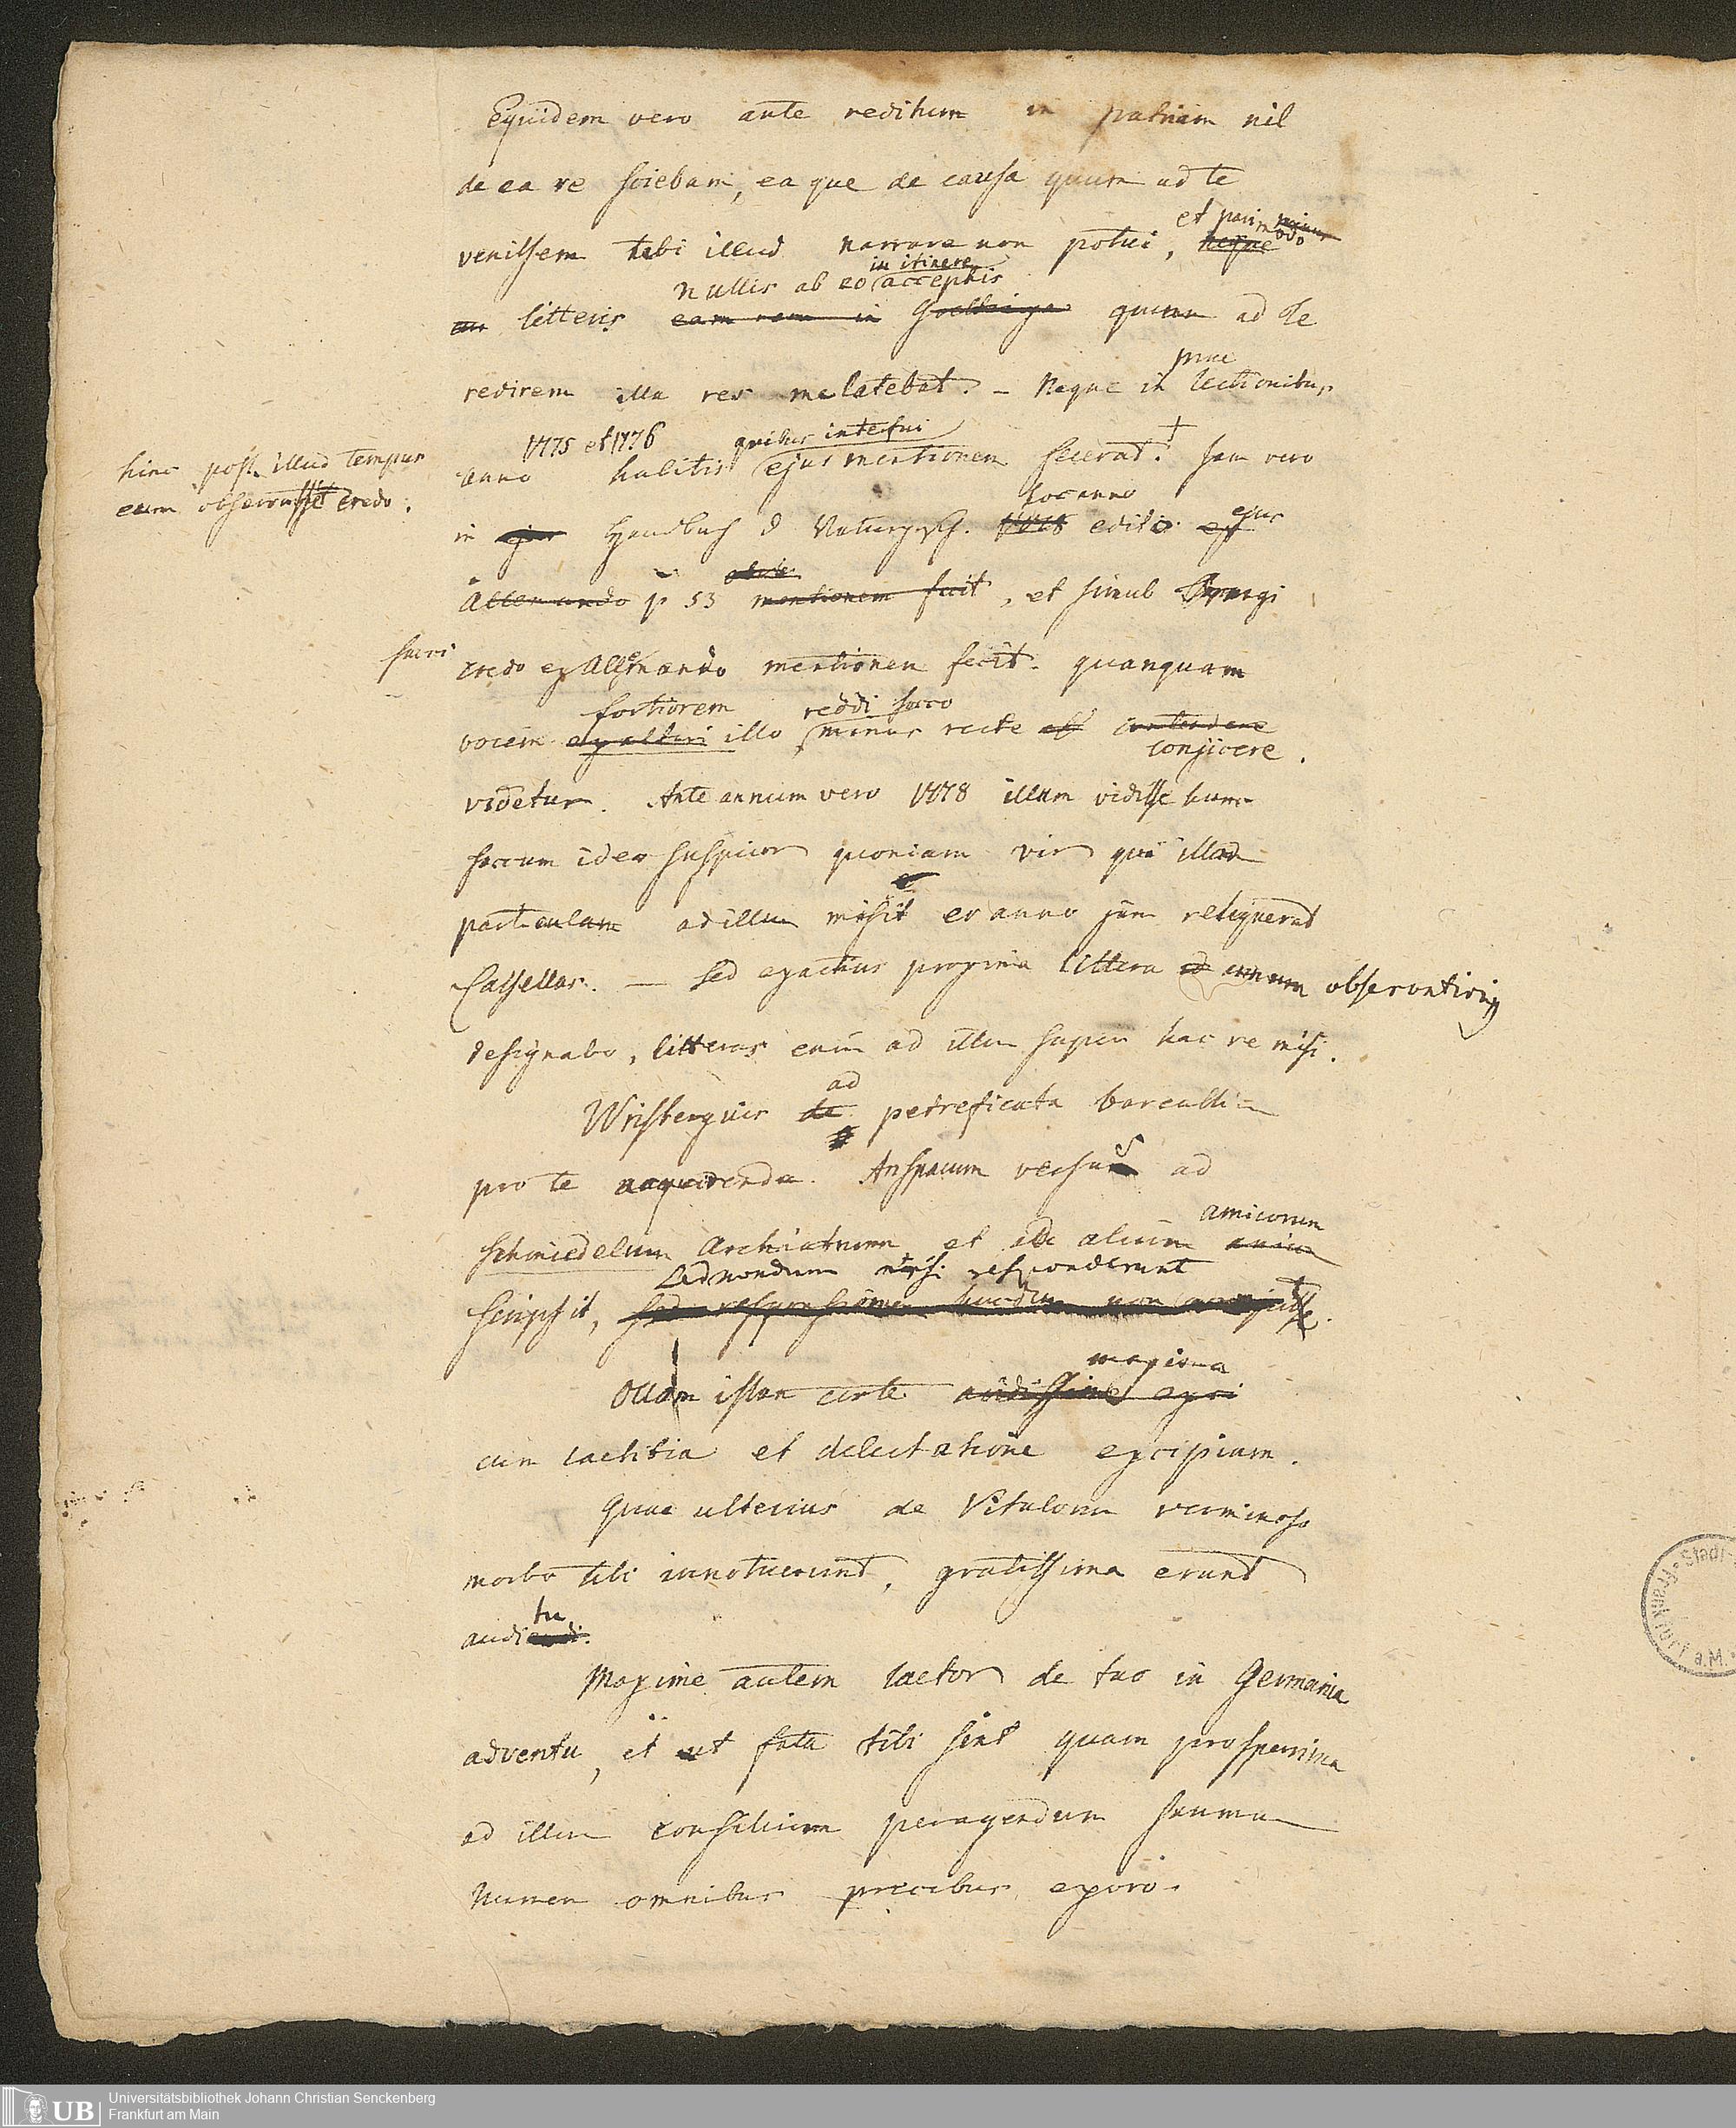 Equidem vero ante reditum in patriam nil
de ea re sciebam, ea que de causa quum ad te
et pari modo
venissem tibi illud narrare non potui, neque
in itinere
nullis ab eo acceptis
litteris eam rem in Goettinga quum ad Te
prae
redirem illa res me latebat. – Neque in lectionibus
1775 et 1776 quibus interfui
anno habitis ejus mentionem fecerat. + Jam vero
hinc post illud tempus
eum observasse credo.
hoc anno ejus
in Handbuch d Naturgesch. 1778 edito
Allemando p 53 mentionem fecit, et simul
sacci
credo ex Allemando mentionem fecit. quanquam
fortiorem reddi sacco
vocem illo minus recte contendere
conjicere.
videtur. Ante annum vero 1778 illum vidisse hunc
saccum ideo suspicor quoniam vir qui illad
particulam ad illum misit eo anno jam reliquerat
Cassellas. — Sed exactius proxima littera annum observationis
designabo, litteras enim ad illum super hac re misi.
ad
Wrisbergius de petreficata
pro te acquirenda. Anspacum versus ad
amicorum
Schmiedelium Archiatrum et ad alium
Sed nondum responderunt
scripsit, sed responsionem nondum
maxima
Ollam istam certe avidissime
cum laetitia et delectatione excipiam.
Quae ulterius de Vitulorum verminoso
morbo tibi innotuerunt, gratissima erunt
tu
audi
Maxime autem laetor de tuo in Germania
adventu, et ut fata tibi sint quam prosperrima
ad illum consilium peragendum summum
Numen omnibus precibus exoro.
Stadt
Frankfurt a.M.
UB Universitätsbibliothek Johann Christian Senckenberg
Frankfurt am Main